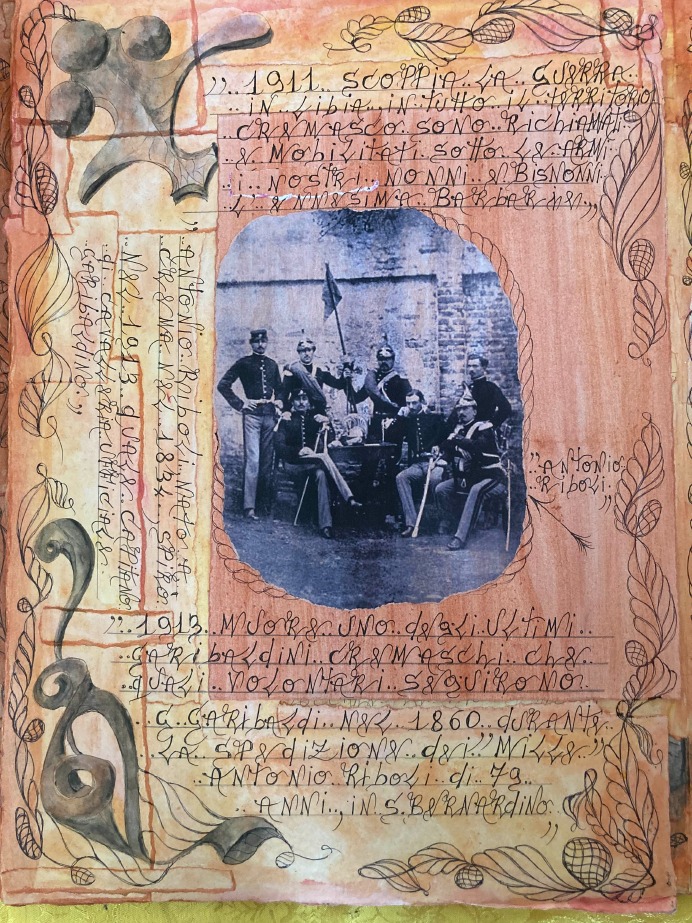 ,,.. 1911.. SCOPPIA.. LA.. GUERRA..
.. IN.. LIBIA.. IN.. TUTTO.. IL.. TERRITORIO
CREMASCO.. SONO.. RICHIAMATI..
.. E.. MOBILITATI.. SOTTO.. LE.. ARMI
.. I.. NOSTRI.. NONNI.. E.. BISNONNI..
L.. ENNESIMA.. BARBARIE,,
,,.. ANTONIO.. Riboli.. NATO.. A
CREMA.. NEL.. 1834.. SPIRO..
NEL.. 1913.. QUALE.. CAPITANO
di.. CAVALLERIA UFFICIALE..
GARIBALDINO..,,
,,.. ANTONIO..
Riboli..
,,.. 1913.. MUORE.. UNO.. degli.. ULTIMI..
.. GARIBALDINI.. CREMASCHI.. CHE..
.. QUALI.. VOLONTARI.. SEGUIRONO..
.. G. GARIBALDI.. NEL.. 1860.. DURANTE..
.. LA.. SPEDIZIONE.. dei ,,MILLE,,
.. ANTONIO.. Riboli.. di.. 79..
.. ANNI.., IN S. BERNARDINO..
,,